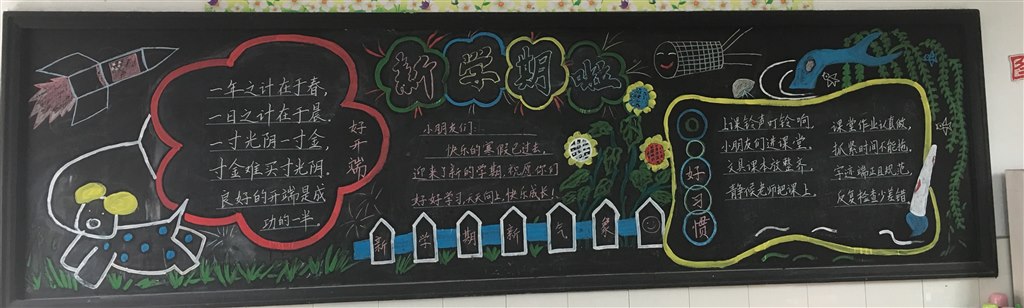 一年之计在于春，
一日之计在于晨。
一寸光阴一寸金，
寸金难买寸光阴。
良好的开端是成
功的一半。
好开端
新学期
小朋友们：
快乐的寒假已过去，
迎来了新的学期，祝愿你们
好好学习，天天向上，快乐成长！
新学期新气象
好习惯
上课铃声叮铃响，
小朋友们进课堂，
文具课本放整齐，
静候老师把课上。
课堂作业认真做，
抓紧时间不能拖，
写字端正且规范，
反复检查少差错